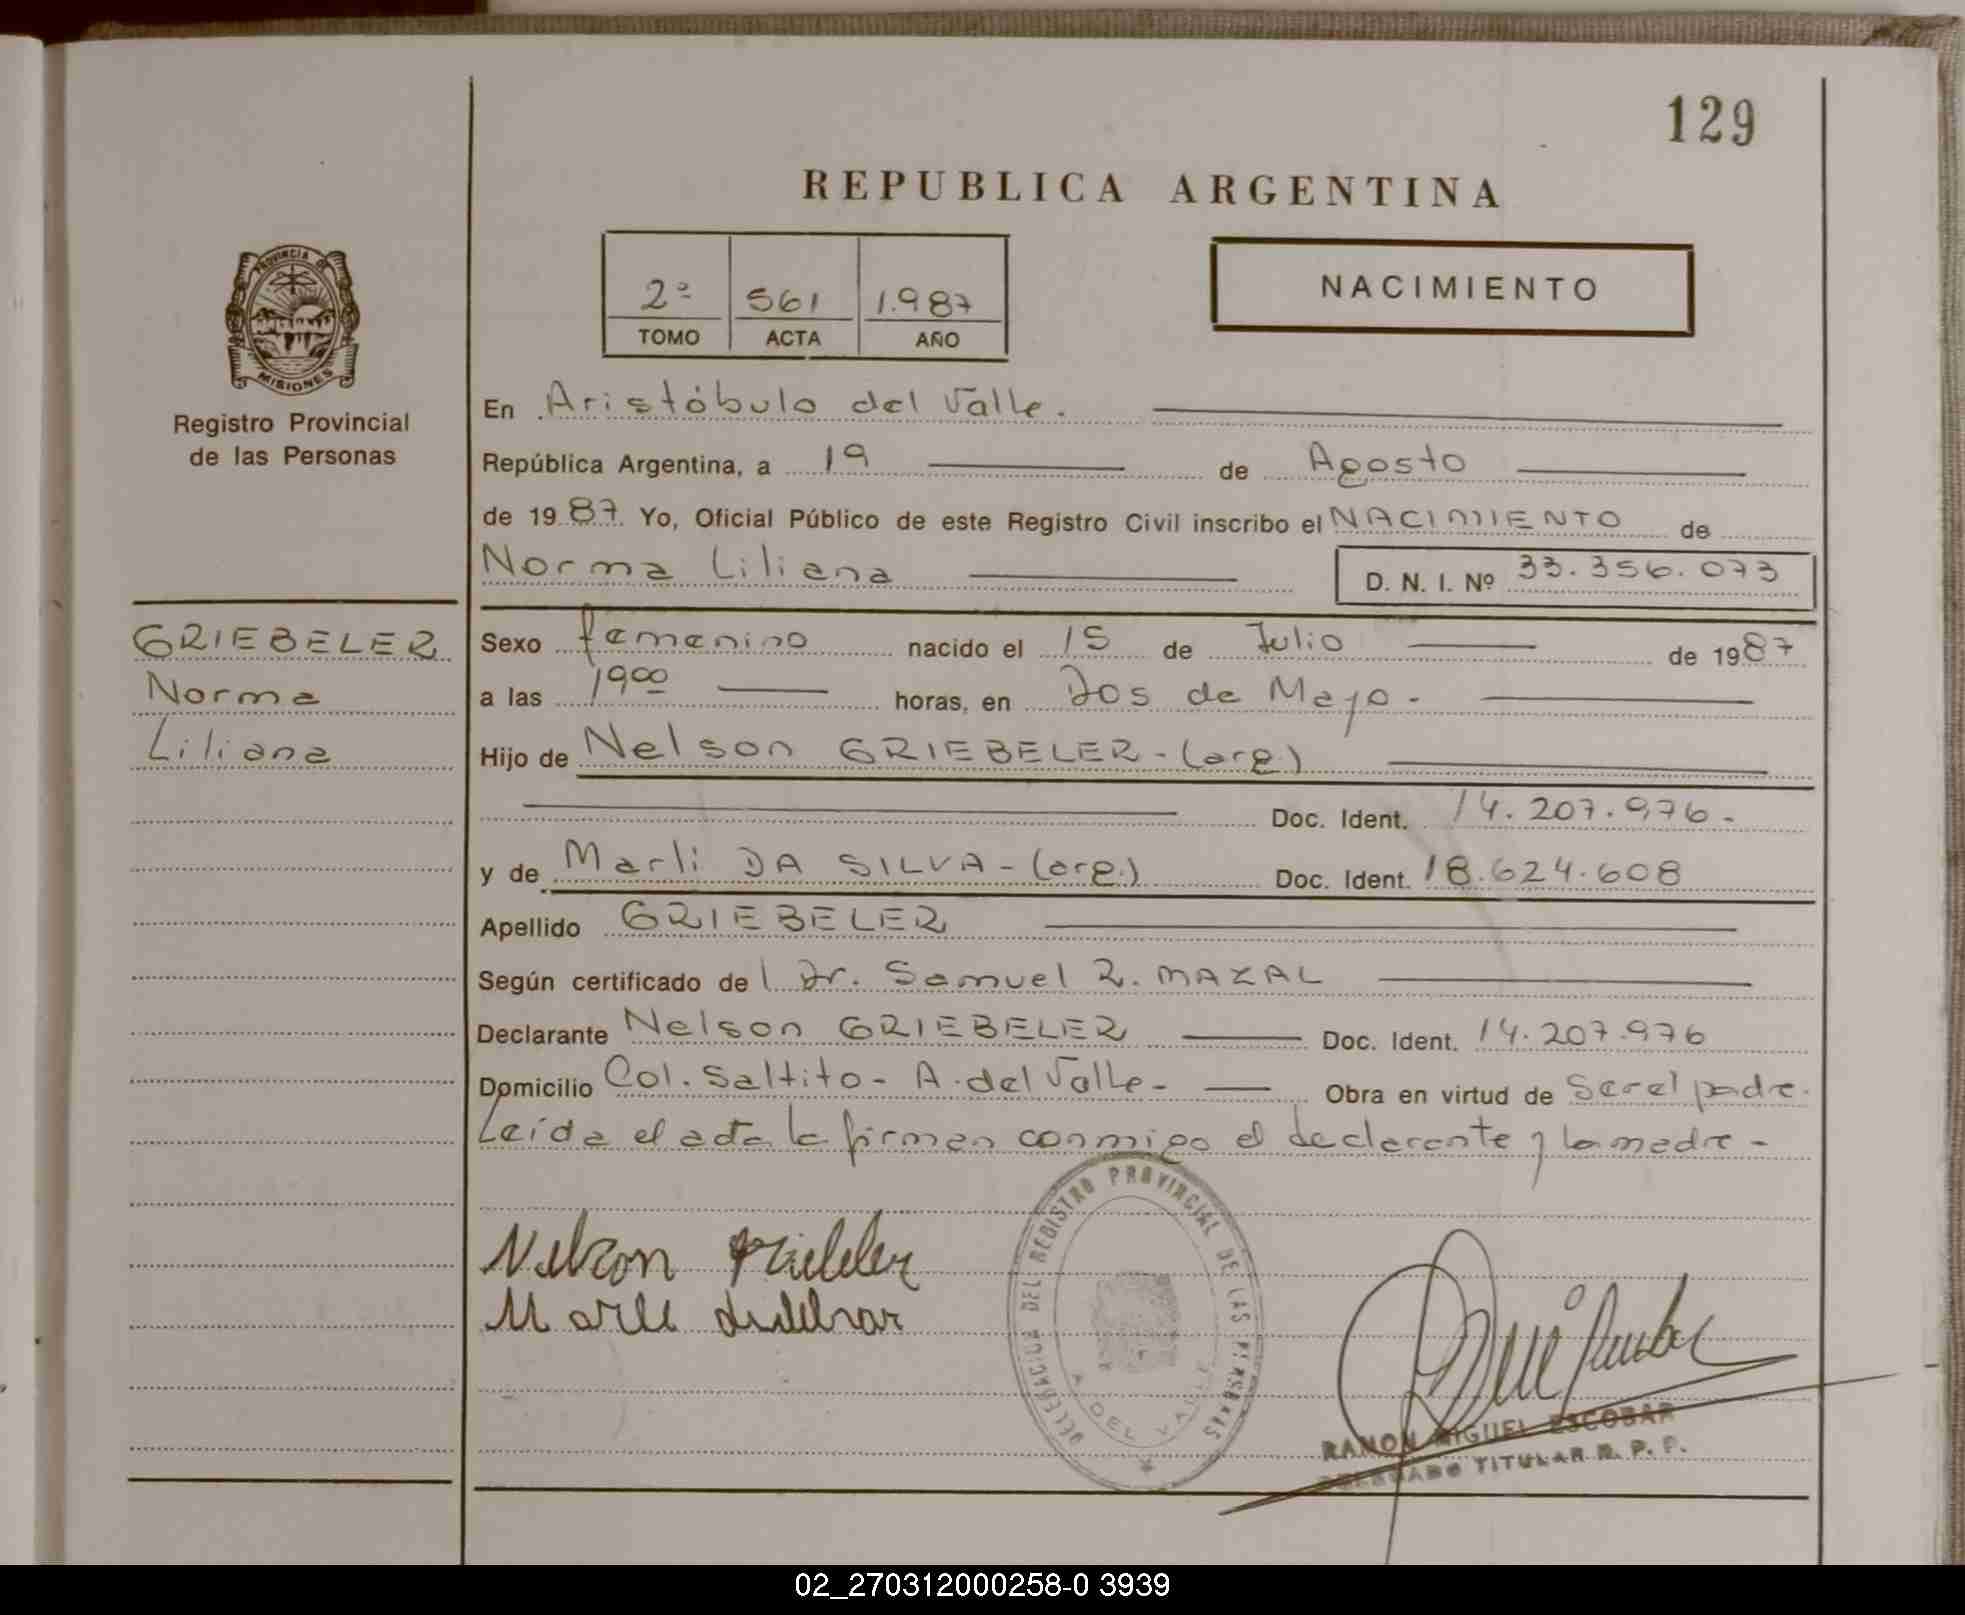 129
REPUBLICA ARGENTINA
2º 561 1.987
TOMO ACTA AÑO
NACIMIENTO
PROVINCIA DE
MISIONES
Registro Provincial
de las Personas
En Aristóbulo del Valle.
República Argentina, a 19 de Agosto
de 1987 Yo, Oficial Público de este Registro Civil inscribo el NACIMIENTO de
Norma Liliana D. N. I. Nº 33.356.073
GRIEBELER
Norma
Liliana
Sexo femenino nacido el 15 de Julio de 1987
a las 19oo horas, en Dos de Mayo.
Hijo de Nelson GRIEBELER - (arg.)
Doc. Ident. 14.207.976.
y de Marli DA SILVA - (arg.) Doc. Ident. 18.624.608
Apellido GRIEBELER
Según certificado de l Dr. Samuel R. MAZAL
Declarante Nelson GRIEBELER Doc. Ident. 14.207.976
Domicilio Col. Saltito - A. del Valle - Obra en virtud de Ser el padre.
Leída el acta la firman conmigo el declarante y la madre -
DELEGACION DEL REGISTRO PROVINCIAL DE LAS PERSONAS
A DEL VALLE
Nelson
RAMON MIGUEL ESCOBAR
DELEGADO TITULAR R. P. P.
02_270312000258-0 3939